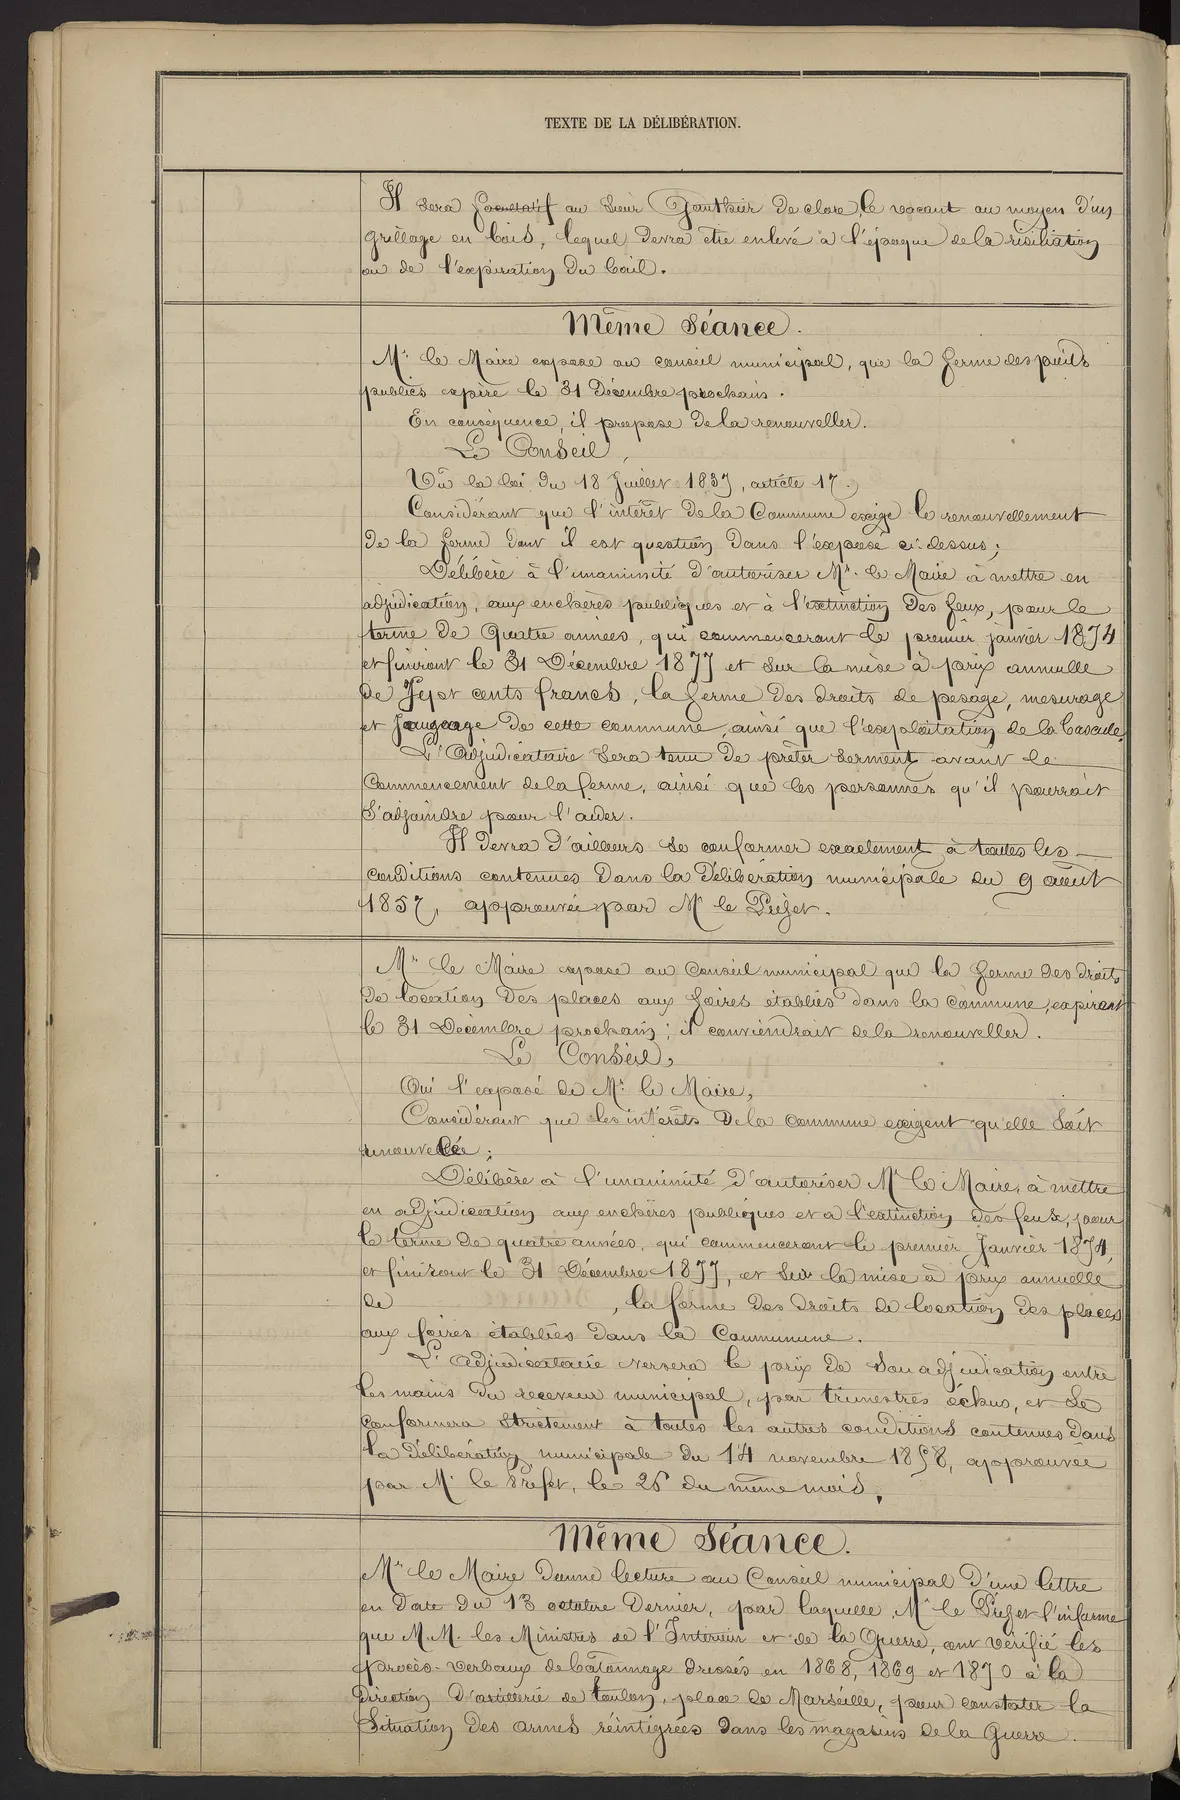 TEXTE DE LA DÉLIBÉRATION.
Il sera facultatif au Sieur Gauthier de clore le vacant au moyen d'un
grillage en bois, lequel devra être enlevé à l'époque de la résiliation
ou de l'expiration du bail.
Même Séance.
Mr le Maire expose au conseil municipal, que la ferme des poids
publics expire le 31 Décembre prochain.
En conséquence, il propose de la renouveller.
Le Conseil,
Vû la loi du 18 Juillet 1837, article 17.
Considérant que l'intérêt de la Commune exige le renouvellement
de la ferme dont il est question dans l'exposé ci-dessus;
Délibère à l'unanimité d'autoriser Mr le Maire à mettre en
adjudication, aux enchères publiques et à l'extinction des feux, pour le
terme de Quatre années, qui commenceront le premier janvier 1874
et finiront le 31 Décembre 1877 et sur la mise à prix annuelle
de Sept cents francs, la ferme des droits de pesage, mesurage
et jaugeage de cette commune, ainsi que l'exploitation de la bascule.
L'adjudicataire sera tenu de prêter serment avant le
Commencement de la ferme, ainsi que les personnes qu'il pourrait
s'adjoindre pour l'aider.
Il devra d'ailleurs se conformer exactement à toutes les
conditions contenues dans la délibération municipale du 9 août
1857, approuvée par Mr le Préfet.
Mr le Maire expose au Conseil municipal que la ferme des droits
de location des places aux foires établies dans la commune, expirant
le 31 Décembre prochain; il conviendrait de la renouveller.
Le Conseil,
Oui l'exposé de Mr le Maire,
Considérant que les intérêts de la commune exigent qu'elle soit
renouvelée;
Délibère à l'unanimité d'autoriser Mr le Maire, à mettre
en adjudication aux enchères publiques et à l'extinction des feux, pour
le terme de quatre années, qui commenceront le premier Janvier 1874,
et finiront le 31 Décembre 1877, et sur la mise à prix annuelle
de , la ferme des droits de location des places
aux foires établies dans la Commumune.
L'adjudicataire versera le prix de son adjudication entre
les mains du receveur municipal, par trimestres échus, et se
conformera strictement à toutes les autres conditions contenues dans
la délibération municipale du 14 novembre 1858, approuvée
par Mr le Préfet, le 26 du même mois.
Même Séance.
Mr le Maire donne lecture au Conseil municipal d'une lettre
en date du 13 octobre dernier, par laquelle, Mr le Préfet l'informe
que M.M. les Ministres de l'Intérieur et de la Guerre, ont vérifié les
procès-verbaux de bâtonnage dressés en 1868, 1869 et 1870 à la
Direction d'artillerie de toulon, place de Marseille, pour constater la
situation des armes réintégrées dans les magasins de la Guerre.